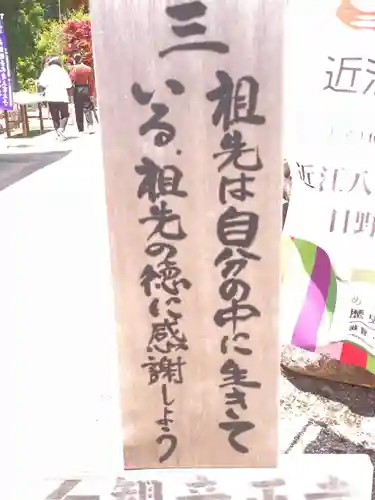 三
祖先は自分の中に生きて
いる.祖先の徳に感謝しよう
近
近江八
日野
め
歴史